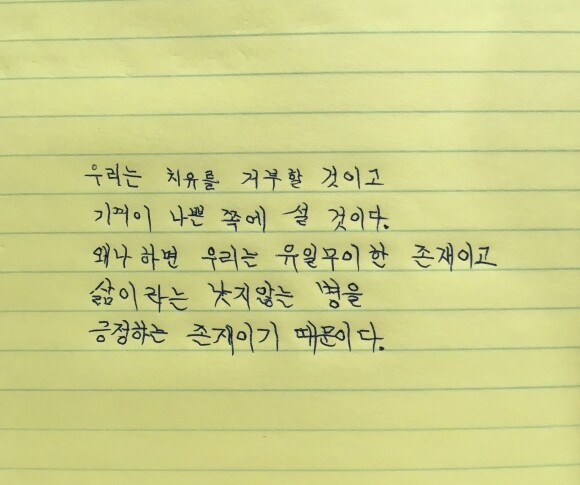 우리는 치유를 거부할 것이고
기꺼이 나쁜 쪽에 설 것이다.
왜나하면 우리는 유일무이한 존재이고
삶이라는 낫지않는 병을
긍정하는 존재이기 때문이다.